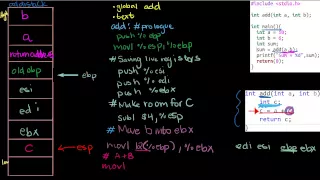 .global add
.text
add: # prologue
push %ebp
movl %esp, %ebp
# Saving live registers
push %esi
push %edi
push %ebx
# Make room for C
subl $4, %esp
# Move b into ebx
movl 12(%ebp), %ebx
# A+B
movl
b
a
return address
old ebp
ebp
esi
edi
ebx
c
esp
edi esi ebp ebx
#include <stdio.h>
int add(int a, int b);
int main(){
int b = 10;
int sum;
sum = add(a,b);
return(0);
int add(int a, int b){
int c;
return c;
}